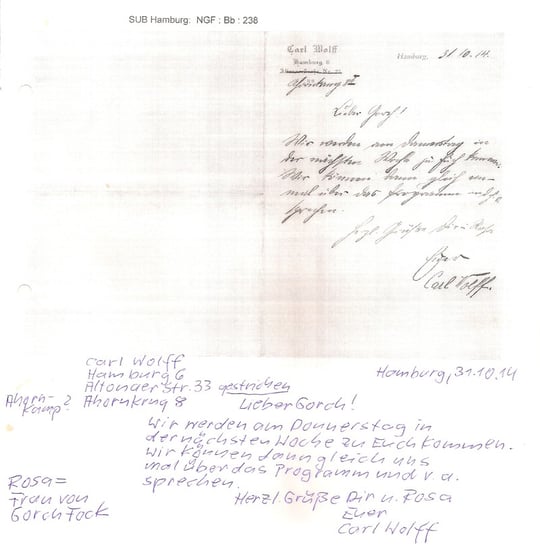 SUB Hamburg: NGF : Bb : 238
Carl Wolff
Hamburg 6
Hamburg, 31.10.14.
Lieber Gorch!
Wir werden am Donnerstag in
der nächsten Woche zu Euch kommen.
Wir können dann gleich
mal über das Programm
sprechen.
Herzl. Grüße Dir u. Rosa
Euer
Carl Wolff.
Carl Wolff
Hamburg 6
Altonaer Str. 33 gestrichen
Hamburg, 31.10.14
Ahorn-
kamp? Ahornkrug 8
Lieber Gorch!
Wir werden am Donnerstag in
der nächsten Woche zu Euch kommen.
Wir können dann gleich uns
mal über das Programm und v. a.
sprechen.
Rosa =
Frau von
Gorch Fock
Herzl. Grüße Dir u. Rosa
Euer
Carl Wolff